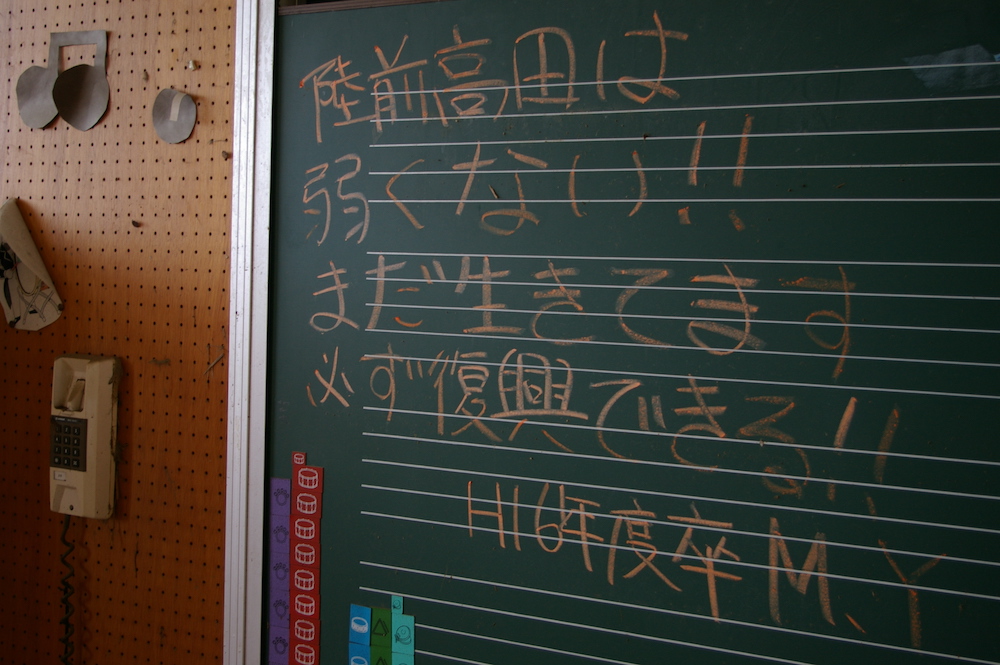 陸前高田は
弱くない!!
まだ生きてます
必ず復興できる!!
H16年度卒 M.Y